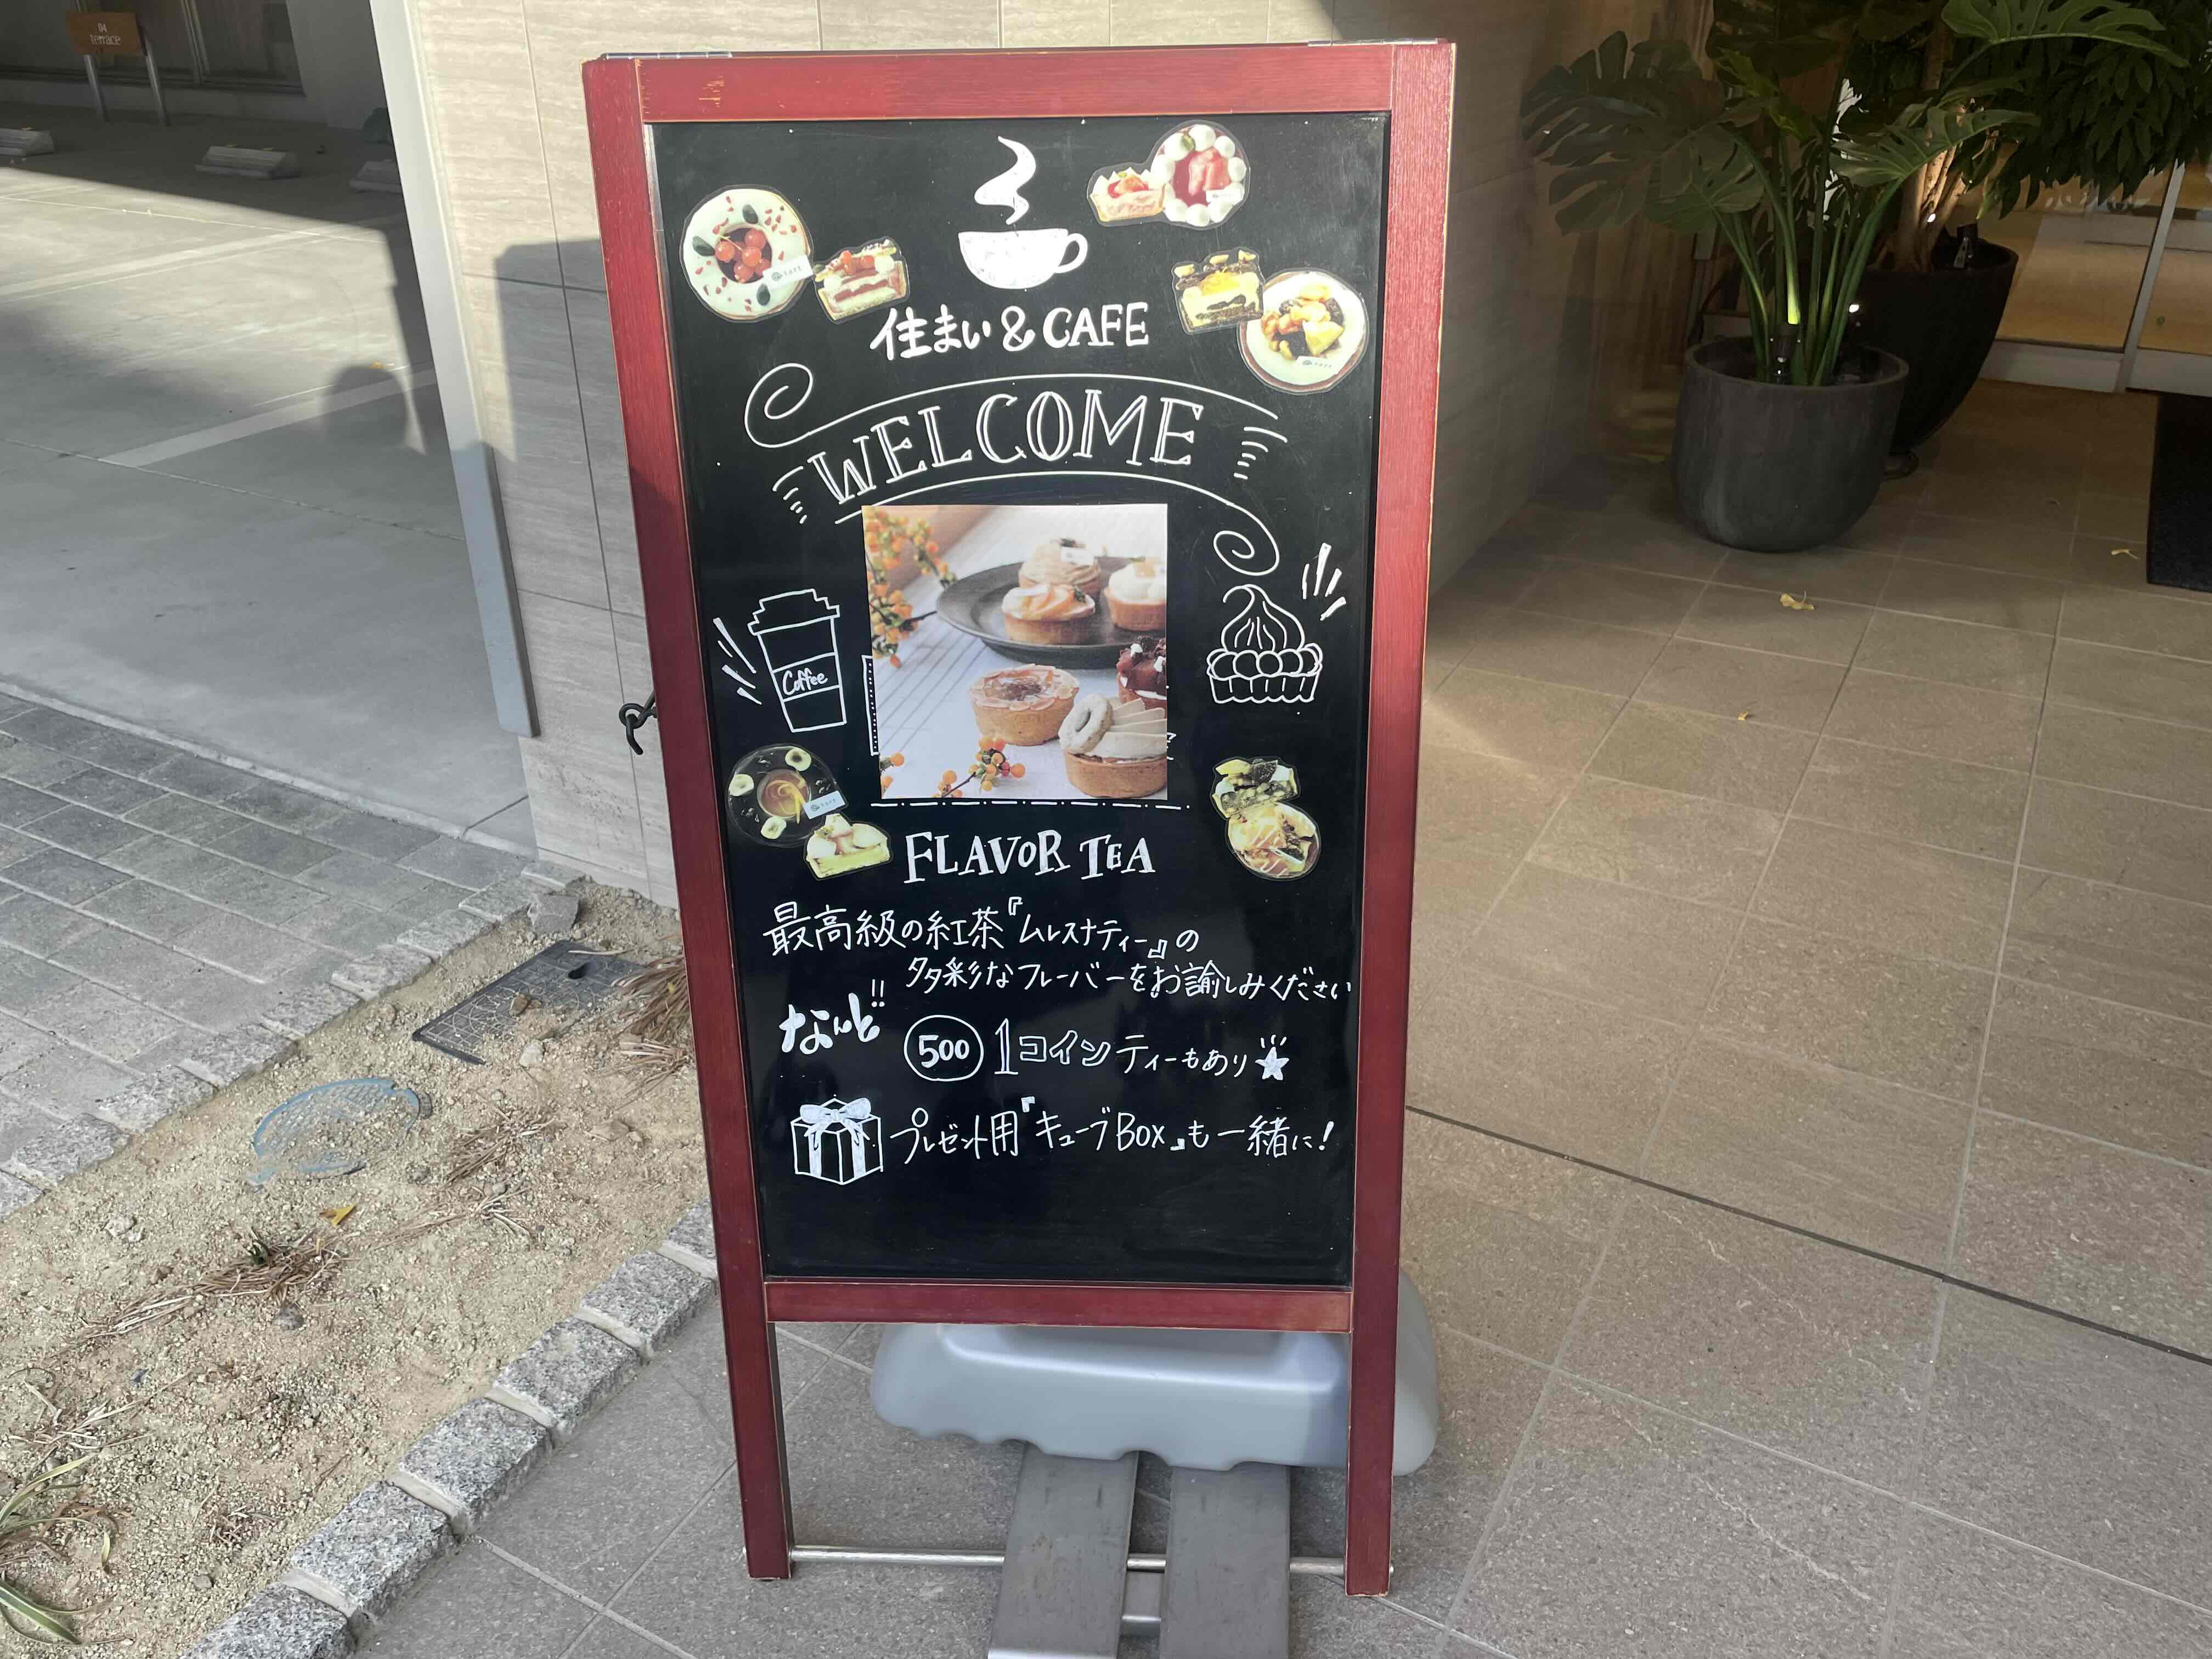 04
terrace
住まい&CAFE
WELCOME
Coffee
FLAVOR TEA
最高級の紅茶『ムレスナティー』の
多彩なフレーバーをお諭しみください
なんと!!
500 1コインティーもあり★
プレゼント用『キューブBOX』も一緒に!